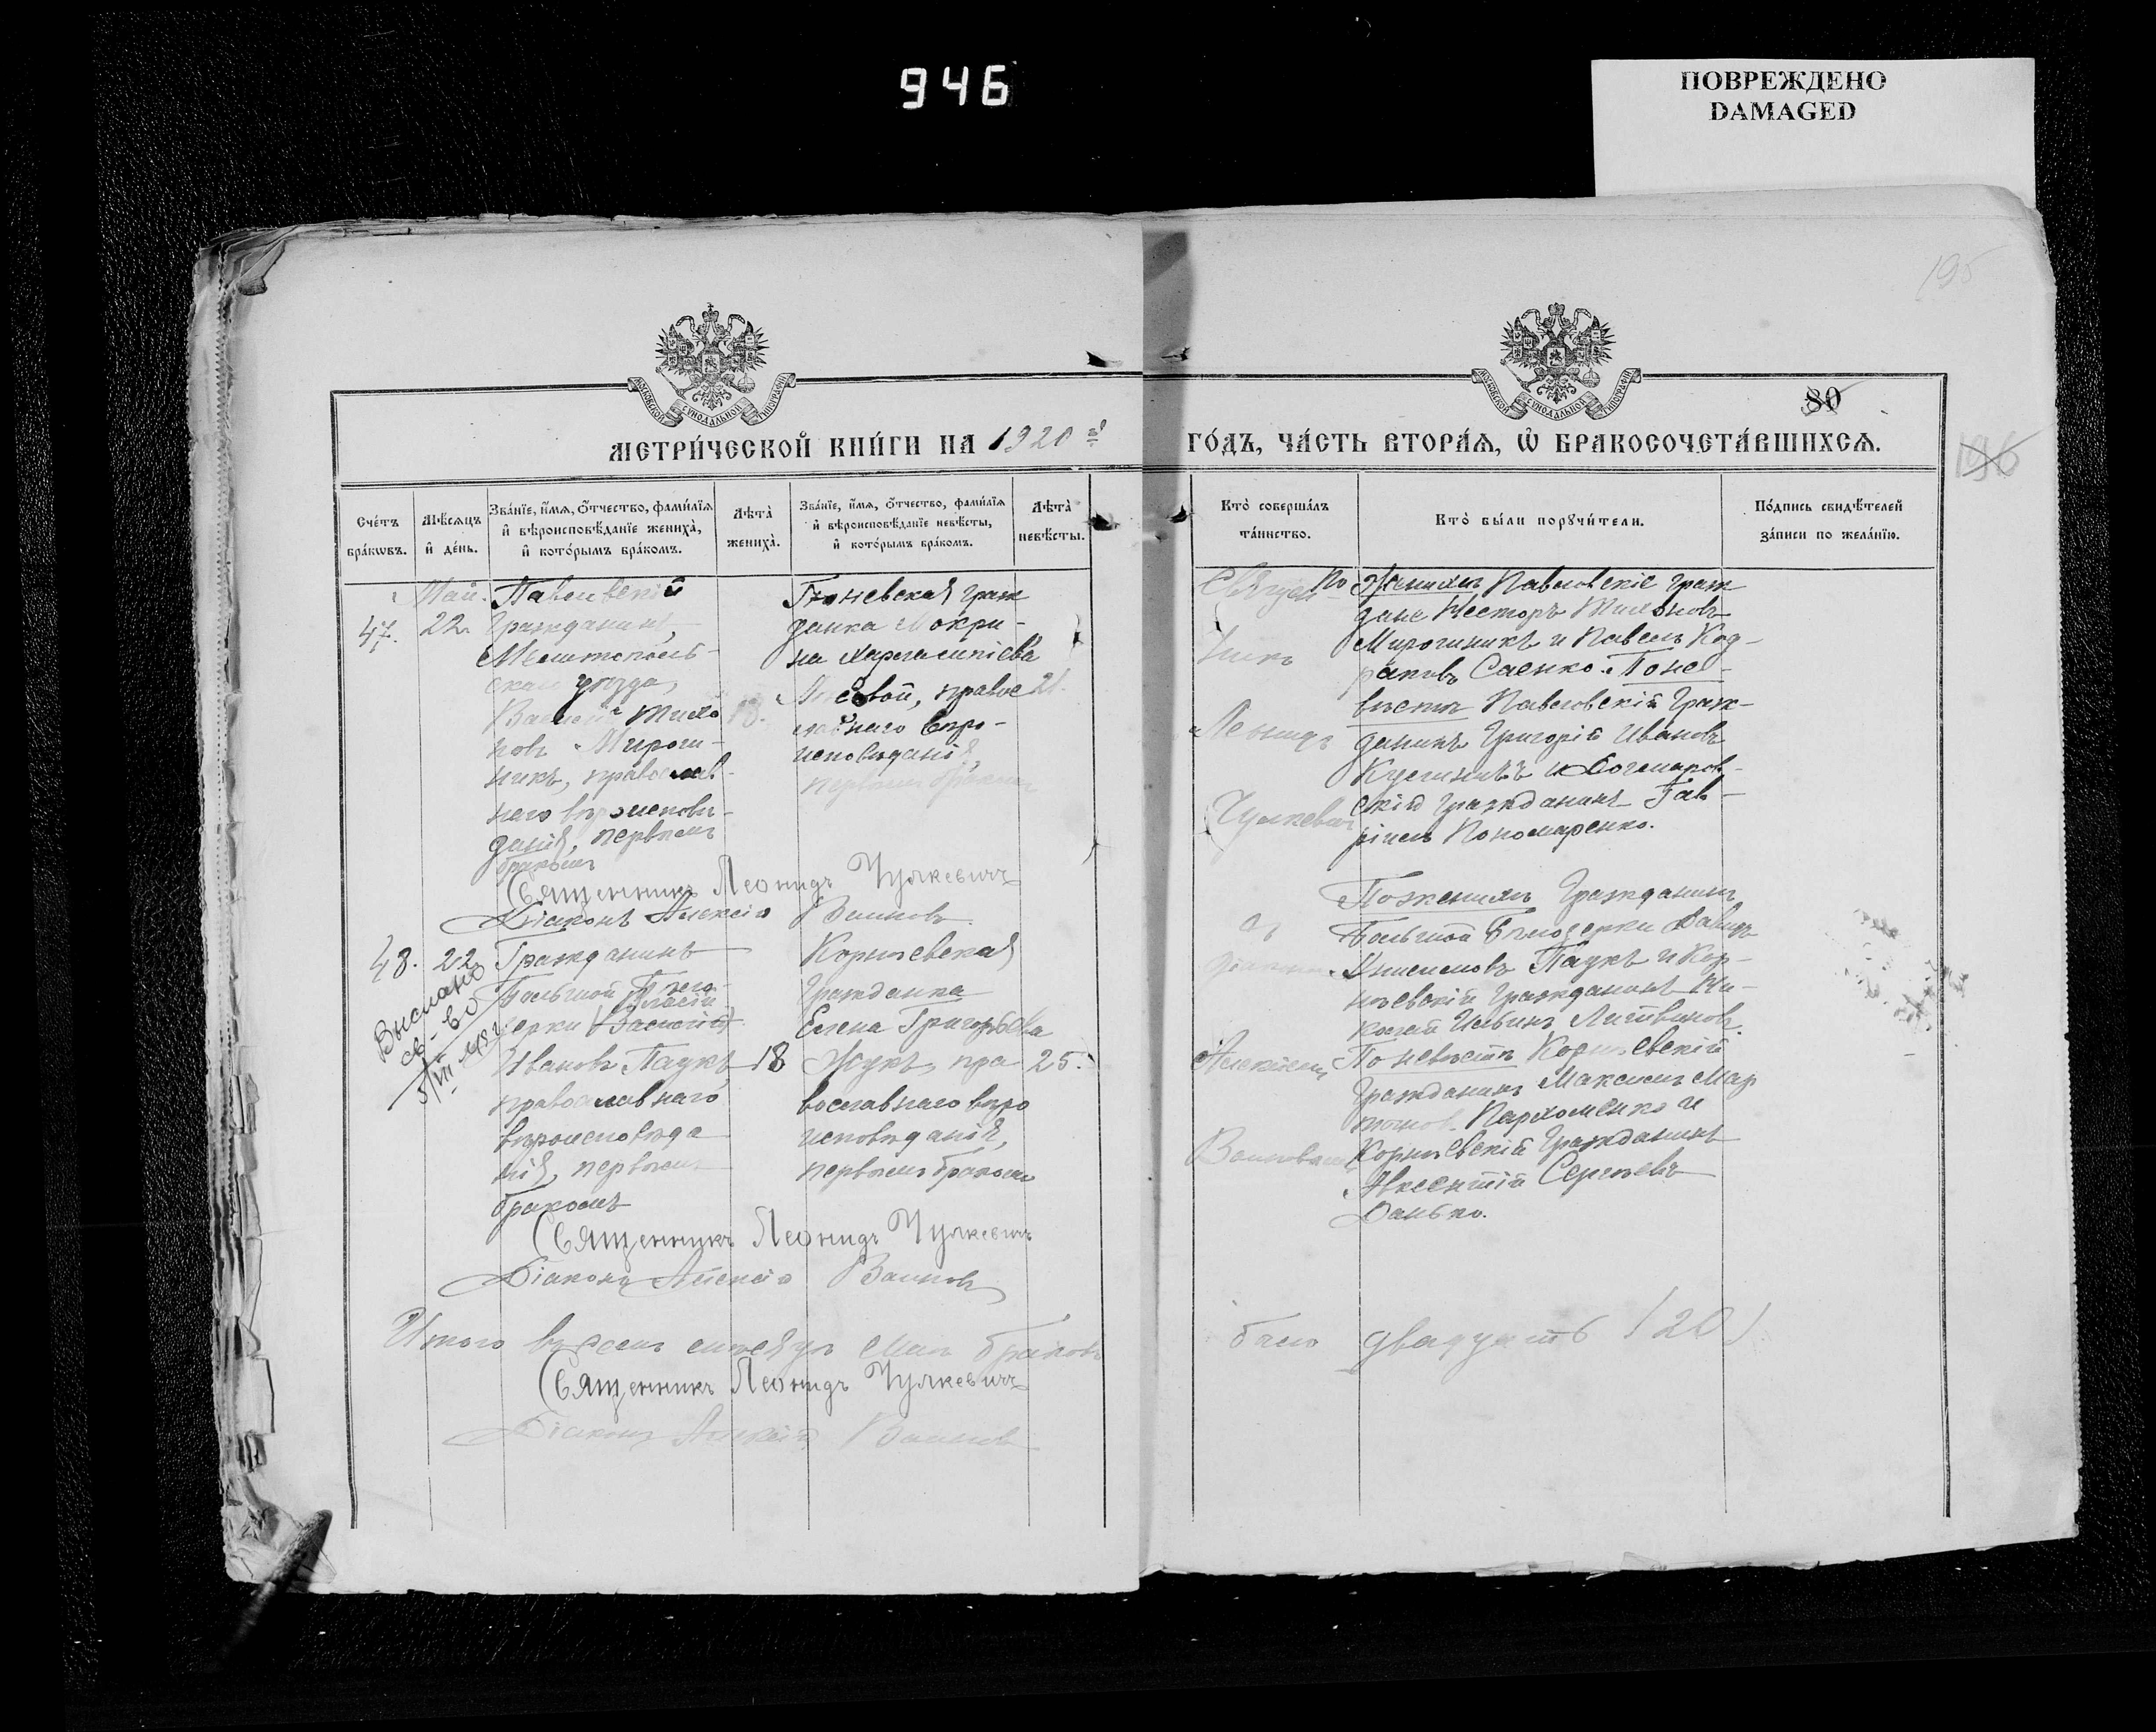 946
ПОВРЕЖДЕНО
DAMAGED
195
80
196
МЕТРИ́ЧЕСКОЙ КНИ́ГИ НА 1920 й
ГО́ДЪ, ЧА́СТЬ ВТОРА́Я, Ѡ БРАКОСОЧЕТА́ВШИХСЯ.
Сче́тъ бра́кѡвъ.
Мѣ́сяцъ и де́нь.
Зва́нїе, и́мя, о́тчество, фами́лїя и вѣроисповѣ́данїе жениха̀, и кото́рымъ бра́комъ.
Лѣта̀ жениха̀.
Зва́нїе, и́мя, о́тчество, фами́лїя и вѣроисповѣ́данїе невѣ́сты, и кото́рымъ бра́комъ.
Лѣта̀ невѣ́сты.
Кто̀ соверша́лъ та́инство.
Кто̀ бы́ли порꙋчи́тели.
По́дпись свидѣ́телей за́писи по жела́нїю.
47.
Май.
22
Павловскій
Гражданинъ,
Мелитополь-
скаго уѣзда,
Василій Тихо
новъ Мирош-
никъ, православ-
наго вѣроисповѣ-
данія, первымъ
бракомъ
18.
гражданка Мокри-
на Харалампіева
православнаго вѣро-
исповѣданія,
первымъ бракомъ
21.
Священ
никъ
Леонидъ
Чулкевич
По женихѣ Павловскіе граж
дане Несторъ Тихоновъ
Мирошникъ и Павелъ Код-
ратовъ Саенко. По не-
вѣстѣ Павловскій Граж-
данинъ Григорій Ивановъ
скій гражданинъ Гав-
ріилъ Пономаренко.
Священникъ Леонидъ Чулкевичъ
Діаконъ Алексій
48.
22
Выслано
св-во
5/VII 48 г
Гражданинъ
Большой Бѣло-
зерки Василій
Власій
Ивановъ Паукъ
православнаго
вѣроисповѣда
нія, первымъ
бракомъ
18
Корнѣевская
Гражданка
Елена Григорьева
Жукъ, пра
вославнаго вѣро
исповѣданія,
первымъ бракомъ
25.
Съ
діакономъ
Алексіемъ
По женихѣ Гражданинъ
Большой Бѣлозерки Давидъ
Анисимовъ Паукъ и Кор-
нѣевскій Гражданинъ Ни-
колай Ильинъ Литвиновъ.
По невѣстѣ Корнѣевскій
Гражданинъ Максимъ Мар
тинов. Пархоменко и
Корнѣевскій Гражданинъ
Авксентій Сергѣевъ
Данько.
Священникъ Леонидъ Чулкевичъ
Діаконъ Алексій
Итого въ семъ мѣсяцѣ Маѣ браковъ было двадцать /20/
Священникъ Леонидъ Чулкевичъ
Діаконъ Алексій